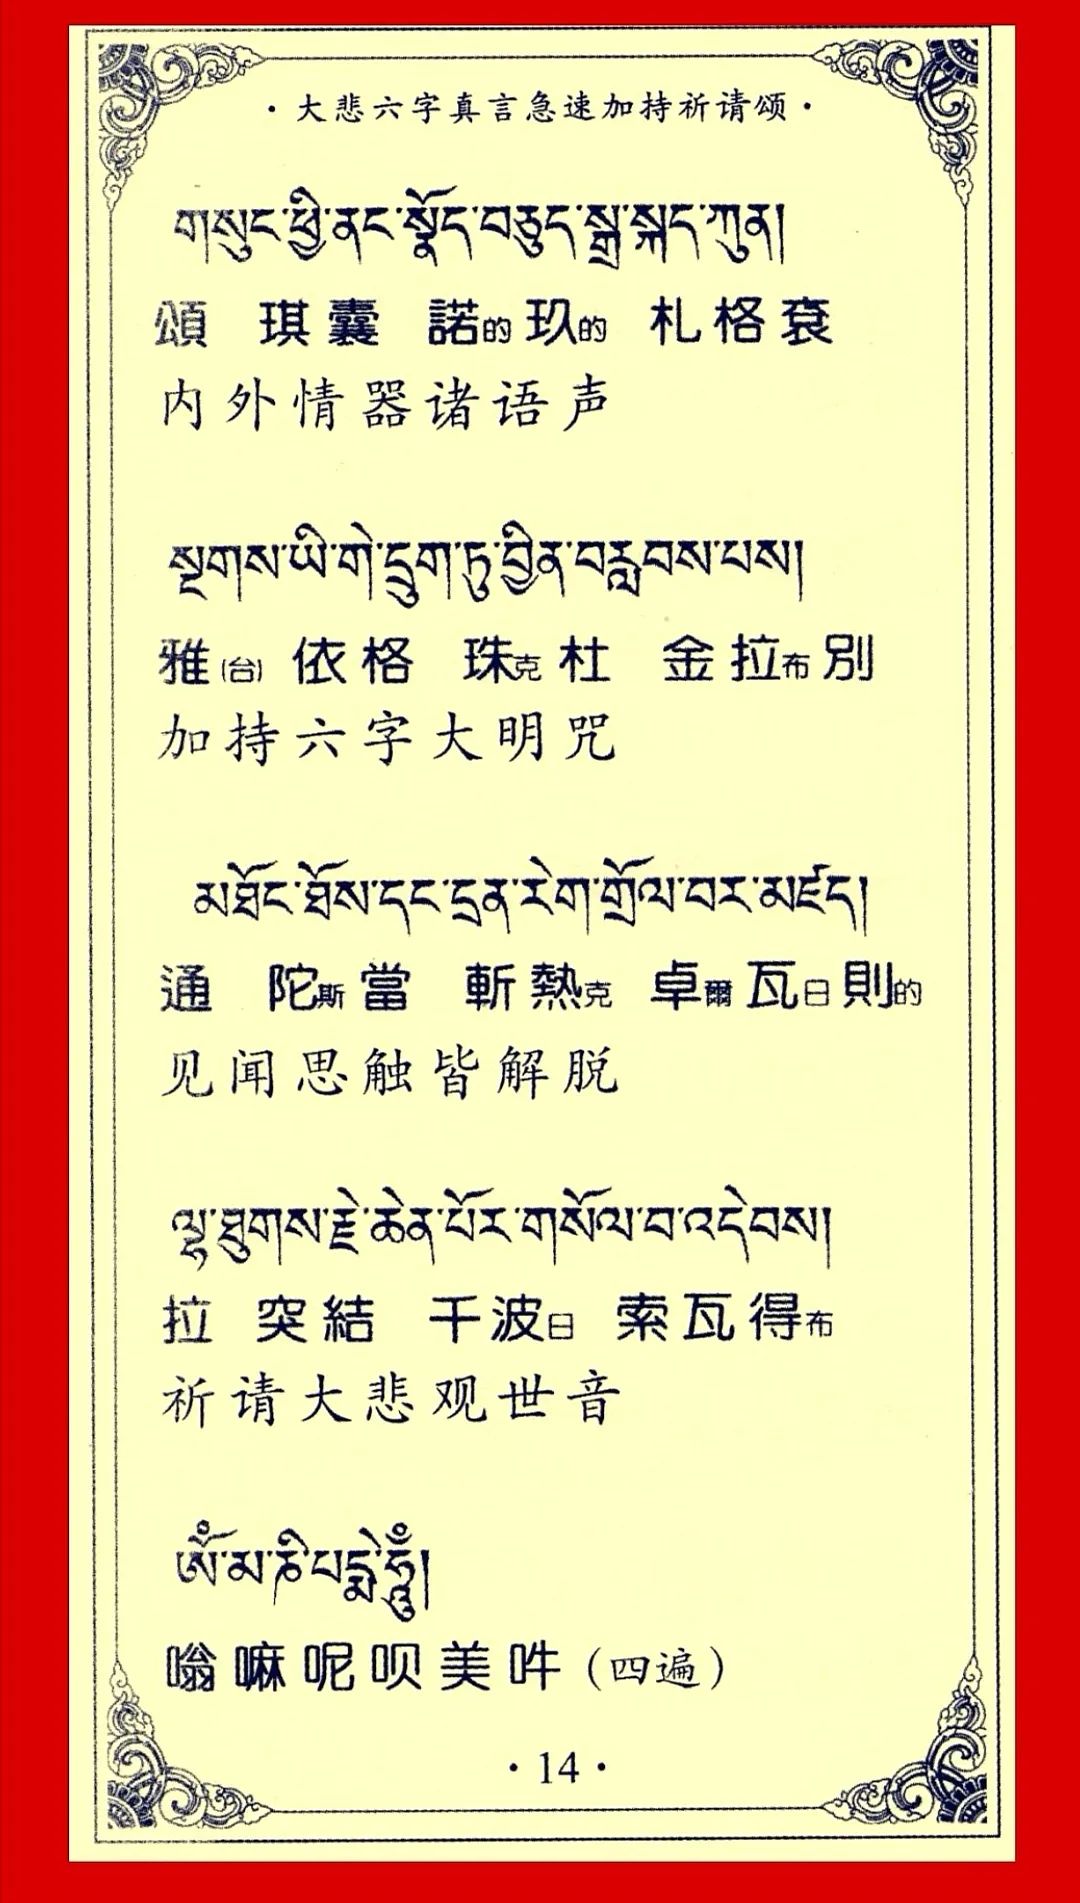 ·大悲六字真言急速加持祈请颂·
གསུང་ཕྱི་ནང་སྣོད་བཅུད་སྒྲ་སྐད་ཀུན།
頌 琪囊 諾的玖的 札格袞
内外情器诸语声
སྔགས་ཡི་གེ་དྲུག་ཏུ་བྱིན་བརླབས་པས།
雅(台) 依格 珠克杜 金拉布別
加持六字大明咒
མཐོང་ཐོས་དང་དྲན་རེག་གྲོལ་བར་མཛད།
通 陀斯當 斬熱克 卓爾瓦日則的
见闻思触皆解脱
ལྷ་ཐུགས་རྗེ་ཆེན་པོར་གསོལ་བ་འདེབས།
拉 突結 千波日 索瓦得布
祈请大悲观世音
ༀ་མ་ཎི་པདྨེ་ཧཱུྃ།
嗡嘛呢呗美吽（四遍）
·14·